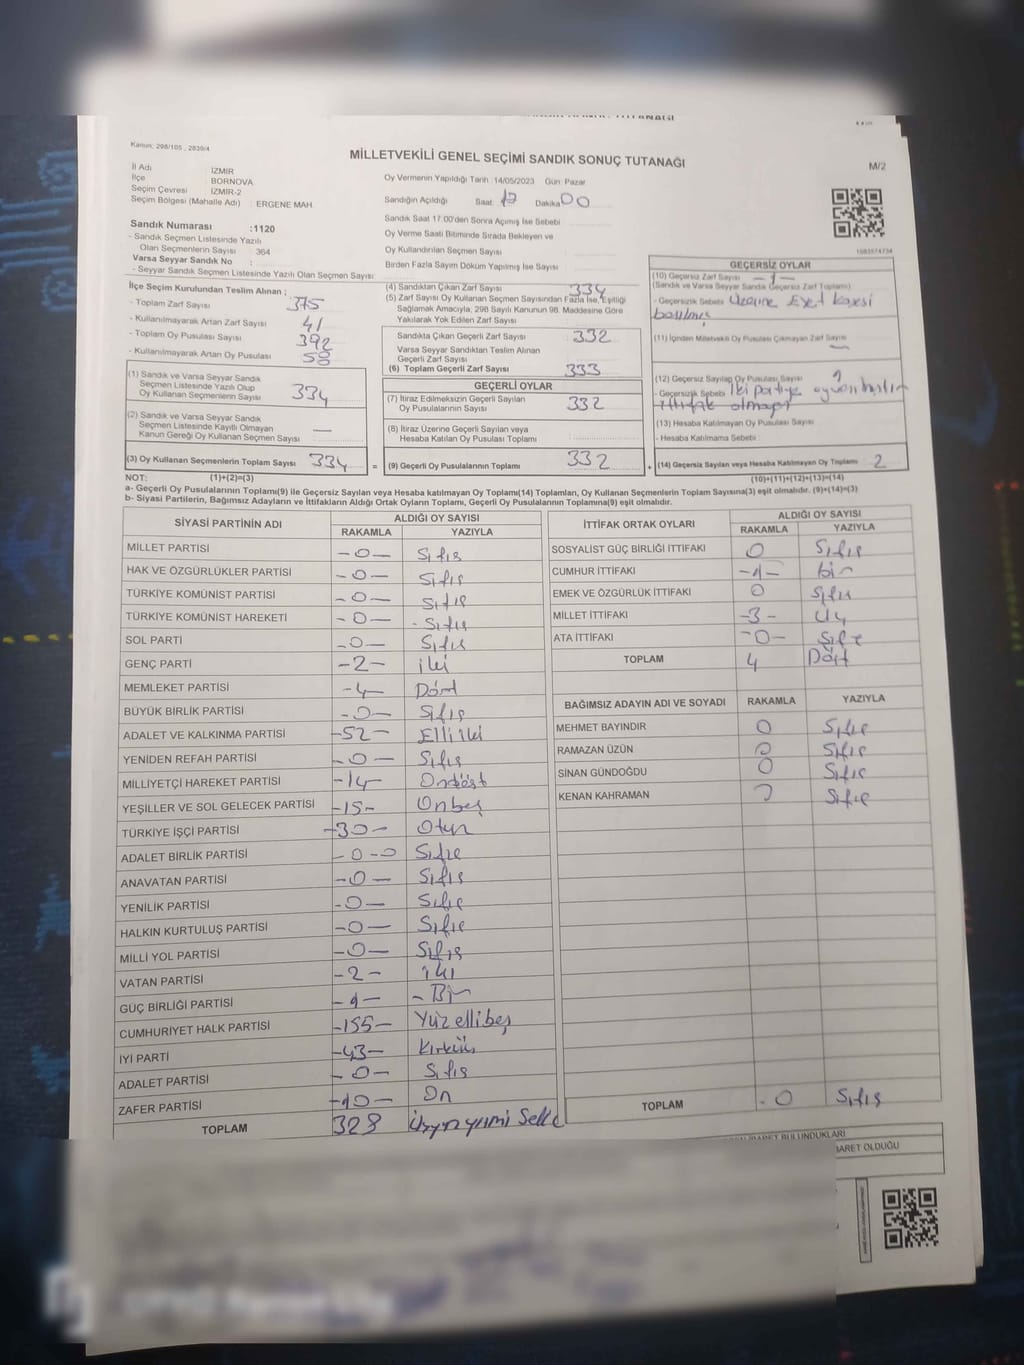 Kanun: 298/105 , 2839/4
MİLLETVEKİLİ GENEL SEÇİMİ SANDIK SONUÇ TUTANAĞI
M/2
İl Adı İZMİR
İlçe BORNOVA
Seçim Çevresi İZMİR-2
Seçim Bölgesi (Mahalle Adı) : ERGENE MAH.
Oy Vermenin Yapıldığı Tarih 14/05/2023 Gün: Pazar
Sandığın Açıldığı Saat Dakika 00
Sandık Saat 17:00'den Sonra Açılmış İse Sebebi
Oy Verme Saati Bitiminde Sırada Bekleyen ve
Oy Kullandırılan Seçmen Sayısı
Birden Fazla Sayım Döküm Yapılmış İse Sayısı
Sandık Numarası :1120
- Sandık Seçmen Listesinde Yazılı
Olan Seçmenlerin Sayısı 364
Varsa Seyyar Sandık No :
- Seyyar Sandık Seçmen Listesinde Yazılı Olan Seçmen Sayısı
İlçe Seçim Kurulundan Teslim Alınan ;
- Toplam Zarf Sayısı 375
- Kullanılmayarak Artan Zarf Sayısı 41
- Toplam Oy Pusulası Sayısı 392
- Kullanılmayarak Artan Oy Pusulası 58
(1) Sandık ve Varsa Seyyar Sandık
Seçmen Listesinde Yazılı Olup
Oy Kullanan Seçmenlerin Sayısı 334
(2) Sandık ve Varsa Seyyar Sandık
Seçmen Listesinde Kayıtlı Olmayan
Kanun Gereği Oy Kullanan Seçmen Sayısı —
(3) Oy Kullanan Seçmenlerin Toplam Sayısı 334 =
(4) Sandıktan Çıkan Zarf Sayısı 334
(5) Zarf Sayısı Oy Kullanan Seçmen Sayısından Fazla İse, Eşitliği
Sağlamak Amacıyla, 298 Sayılı Kanunun 98. Maddesine Göre
Yakılarak Yok Edilen Zarf Sayısı
Sandıkta Çıkan Geçerli Zarf Sayısı 332
Varsa Seyyar Sandıktan Teslim Alınan
Geçerli Zarf Sayısı
(6) Toplam Geçerli Zarf Sayısı 333
GEÇERLİ OYLAR
(7) İtiraz Edilmeksizin Geçerli Sayılan
Oy Pusulalarının Sayısı 332
(8) İtiraz Üzerine Geçerli Sayılan veya
Hesaba Katılan Oy Pusulası Toplamı
(9) Geçerli Oy Pusulalarının Toplamı 332 +
GEÇERSİZ OYLAR
(10) Geçersiz Zarf Sayısı -1-
(Sandık ve Varsa Seyyar Sandık Geçersiz Zarf Toplamı)
- Geçersizlik Sebebi Üzerine Evet kaşesi
basılmış
(11) İçinden Milletvekili Oy Pusulası Çıkmayan Zarf Sayısı —
(12) Geçersiz Sayılan Oy Pusulası Sayısı
- Geçersizlik Sebebi İki partiye
ittifak olmayan
(13) Hesaba Katılmayan Oy Pusulası Sayısı
- Hesaba Katılmama Sebebi
(14) Geçersiz Sayılan veya Hesaba Katılmayan Oy Toplamı 2
NOT: (1)+(2)=(3) (10)+(11)+(12)+(13)=(14)
a- Geçerli Oy Pusulalarının Toplamı(9) ile Geçersiz Sayılan veya Hesaba katılmayan Oy Toplamı(14) Toplamları, Oy Kullanan Seçmenlerin Toplam Sayısına(3) eşit olmalıdır. (9)+(14)=(3)
b- Siyasi Partilerin, Bağımsız Adayların ve İttifakların Aldığı Ortak Oyların Toplamı, Geçerli Oy Pusulalarının Toplamına(9) eşit olmalıdır.
SİYASİ PARTİNİN ADI ALDIĞI OY SAYISI
RAKAMLA YAZIYLA
MİLLET PARTİSİ -0- Sıfır
HAK VE ÖZGÜRLÜKLER PARTİSİ -0- Sıfır
TÜRKİYE KOMÜNİST PARTİSİ -0- Sıfır
TÜRKİYE KOMÜNİST HAREKETİ -0- Sıfır
SOL PARTİ -0- Sıfır
GENÇ PARTİ -2- iki
MEMLEKET PARTİSİ -4- Dört
BÜYÜK BİRLİK PARTİSİ -0- Sıfır
ADALET VE KALKINMA PARTİSİ -52- Elliiki
YENİDEN REFAH PARTİSİ -0- Sıfır
MİLLİYETÇİ HAREKET PARTİSİ -14- Ondört
YEŞİLLER VE SOL GELECEK PARTİSİ -15- Onbeş
TÜRKİYE İŞÇİ PARTİSİ -30- Otuz
ADALET BİRLİK PARTİSİ -0-0 Sıfır
ANAVATAN PARTİSİ -0- Sıfır
YENİLİK PARTİSİ -0- Sıfır
HALKIN KURTULUŞ PARTİSİ -0- Sıfır
MİLLİ YOL PARTİSİ -0- Sıfır
VATAN PARTİSİ -2- iki
GÜÇ BİRLİĞİ PARTİSİ -1- - Bir
CUMHURİYET HALK PARTİSİ -155- Yüzellibeş
İYİ PARTİ -43- Kırküç
ADALET PARTİSİ -0- Sıfır
ZAFER PARTİSİ -10- On
TOPLAM 328 Üçyüzyirmi Sekiz
İTTİFAK ORTAK OYLARI ALDIĞI OY SAYISI
RAKAMLA YAZIYLA
SOSYALİST GÜÇ BİRLİĞİ İTTİFAKI 0 Sıfır
CUMHUR İTTİFAKI -1- bir
EMEK VE ÖZGÜRLÜK İTTİFAKI 0 Sıfır
MİLLET İTTİFAKI -3- Üç
ATA İTTİFAKI -0- Sıfır
TOPLAM 4 Dört
BAĞIMSIZ ADAYIN ADI VE SOYADI RAKAMLA YAZIYLA
MEHMET BAYINDIR 0 Sıfır
RAMAZAN ÜZÜN 0 Sıfır
SİNAN GÜNDOĞDU 0 Sıfır
KENAN KAHRAMAN 0 Sıfır
TOPLAM - 0 Sıfır